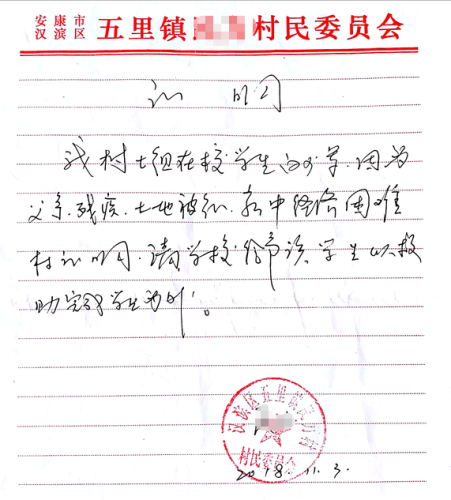 安康市
汉滨区 五里镇 村民委员会
证 明
我村七组在校学生 因为
父亲残疾.土地被征.家中经济困难
特证明.请学校给予该学生以救
助完成学生学业。
汉滨区五里镇
村民委员会
2018.11.3.